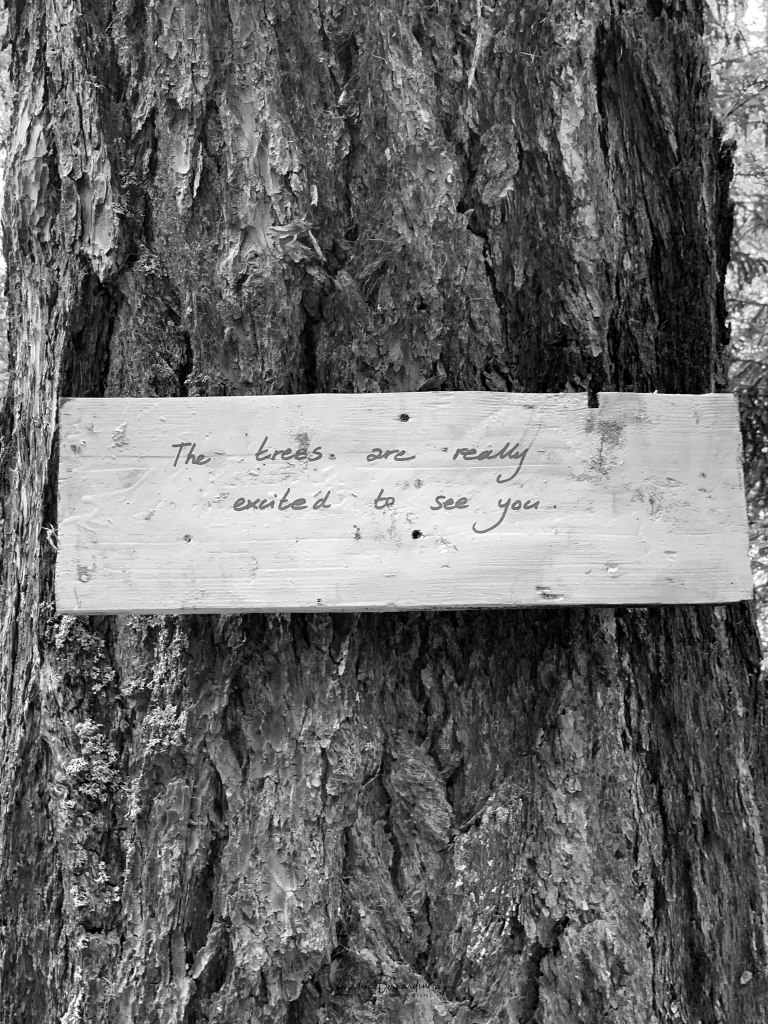 The trees. are really
excited to see you.